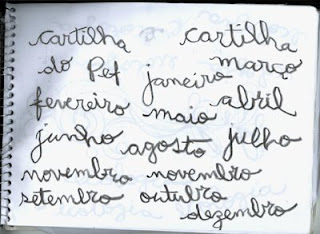 cartilha cartilha
do Pef janeiro março
fevereiro maio abril
junho agosto julho
novembro novembro
setembro outubro
dezembro